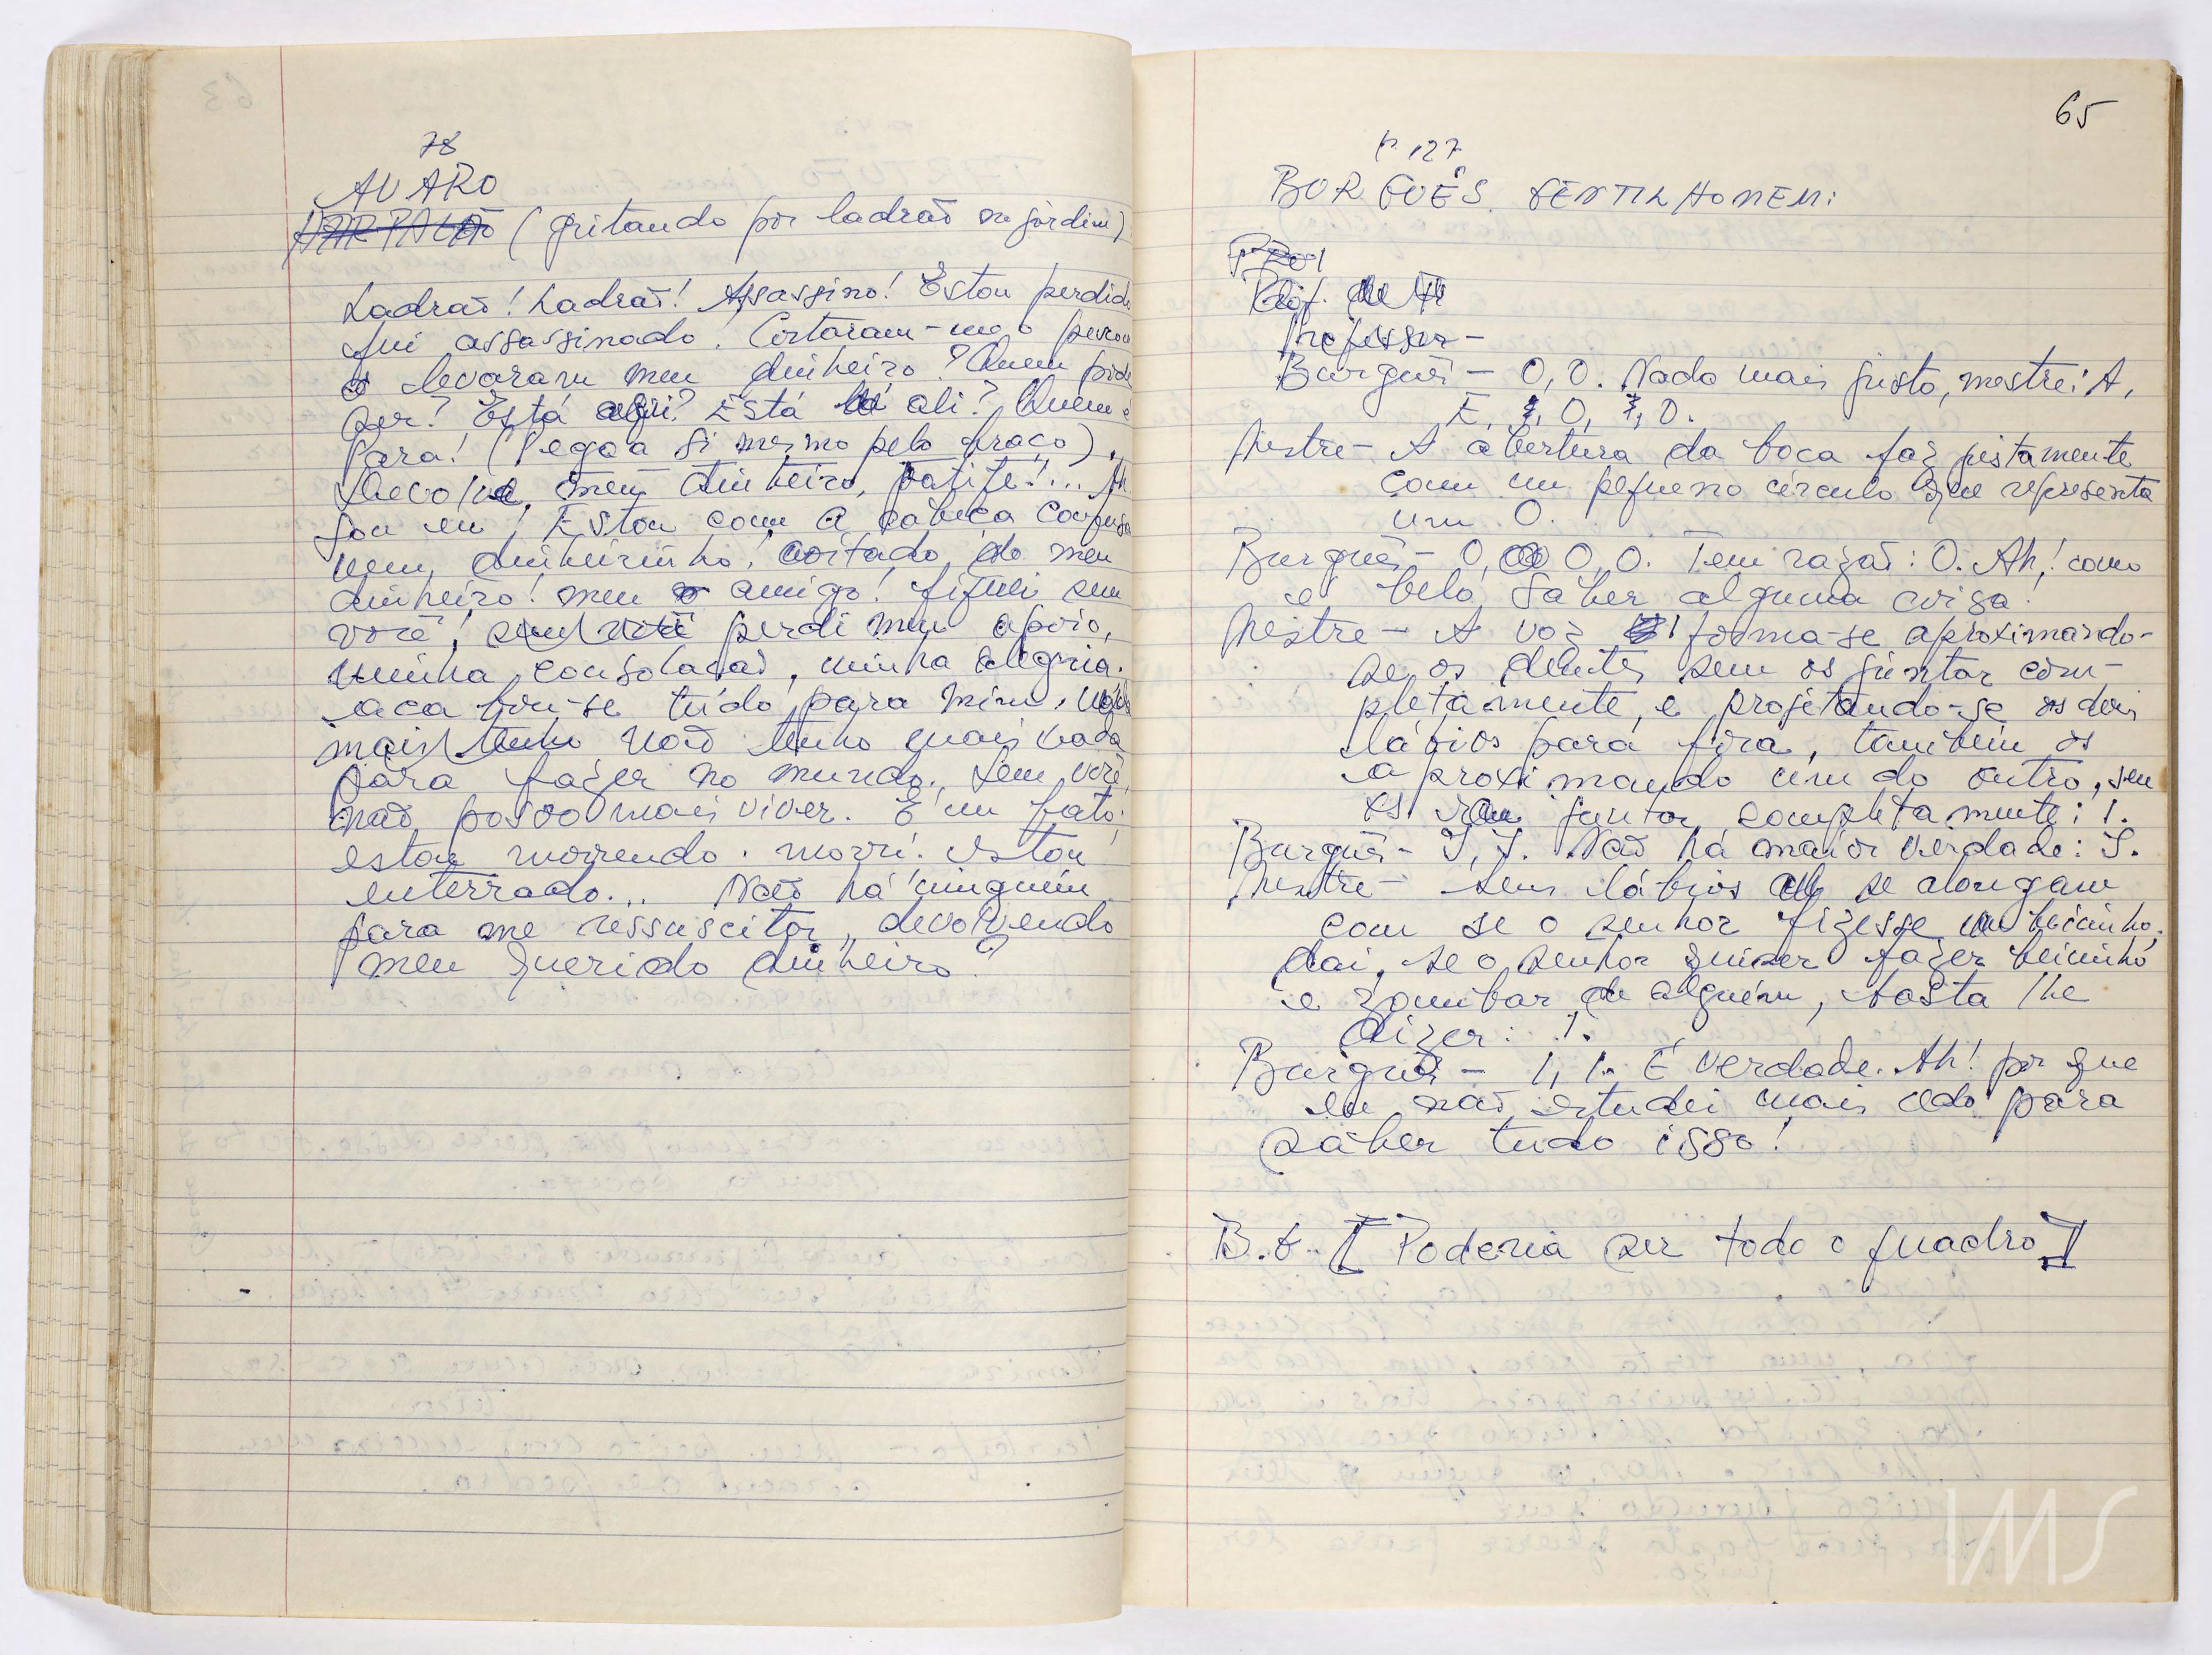 78
AVARO
HARPAGÃO (gritando por ladrão no jardim)
Ladrão! Ladrão! Assassino! Estou perdido
fui assassinado! Cortaram-me o pescoço
e levaram meu dinheiro? Quem pode
ser? Está aqui? Está ali? Quem é
Para! (Pega a si mesmo pelo braço).
Devolve meu dinheiro, patife!... Ah
sou eu! Estou com a cabeça confusa
meu dinheirinho! coitado do meu
dinheiro! meu amigo! fiquei sem
você! sem você perdi meu apoio,
minha consolação, minha alegria.
acabou-se tudo para mim,
mais tenho não tenho mais nada
para fazer no mundo. Sem você
não posso mais viver. É um fato:
estou morrendo. morri. estou
enterrado... Não há ninguém
para me ressuscitar, devolvendo
meu querido dinheiro?
65
p. 127
BURGUÊS GENTILHOMEM:
Prof
Prof. de
Professor -
Burguês - O, O. Nada mais justo, mestre: A,
E, I, O, I, O.
Mestre - A abertura da boca faz justamente
com um pequeno círculo que representa
um O.
Burguês - O, O, O. Tem razão: O. Ah! como
é belo saber alguma coisa!
Mestre - A voz I forma-se aproximando-
se os dentes sem os juntar com-
pletamente, e projetando-se os dois
lábios para fora, também os
aproximando um do outro, sem
os juntar completamente: I.
Burguês - I, I. Não há maior verdade: I.
Mestre - Seus lábios se alongam
com se o senhor fizesse um beicinho:
daí, se o senhor quiser fazer beicinho
e zombar de alguém, basta lhe
dizer: I.
Burguês - I, I. É verdade. Ah! por que
eu não estudei mais cedo para
saber tudo isso!
B.G. [Poderia ser todo o quadro]
IMS